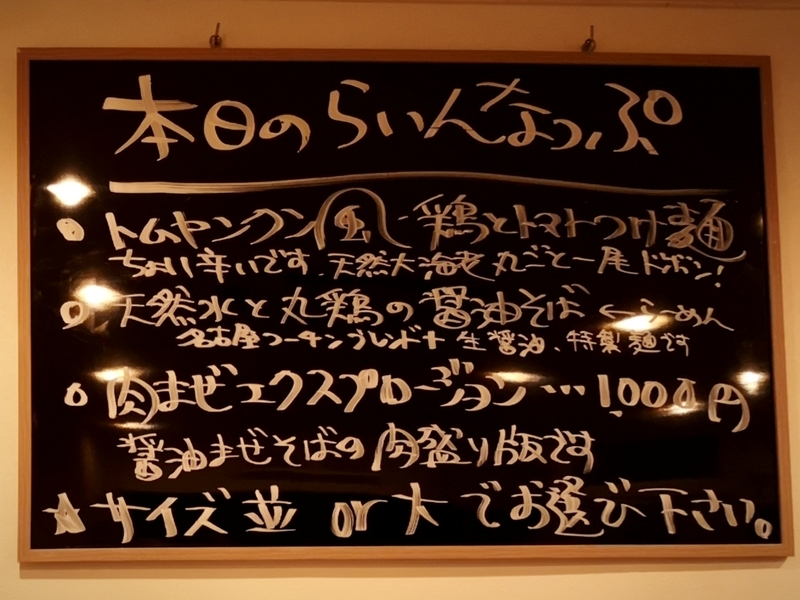 本日のらいんなっぷ
○トムヤンクン風・鶏とトマトつけ麺
ちょい辛いです。天然大海老丸ごと一尾ドボン!
○天然水と丸鶏の醤油そば ←らーめん
名古屋コーチンブレンド+生醤油、特製麺です
○肉まぜエクスプロージョン…1,000円
醤油まぜそばの肉盛り版です
☆サイズ並 or 大でお選び下さい。